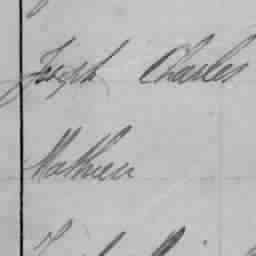 Joseph Charles
Mathieu